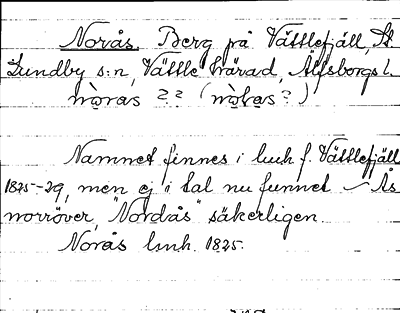 Norås. Berg på Vättlefjäll, St
Lundby s:n, Vättle härad, Älfsborgs l.
nòras ?? (nòkas?)
Namnet finnes i lmh f. Vättlefjäll
1875-29, men ej i tal nu funnet - Ås
norröver, "Nordås" säkerligen.
Norås lmh. 1825.